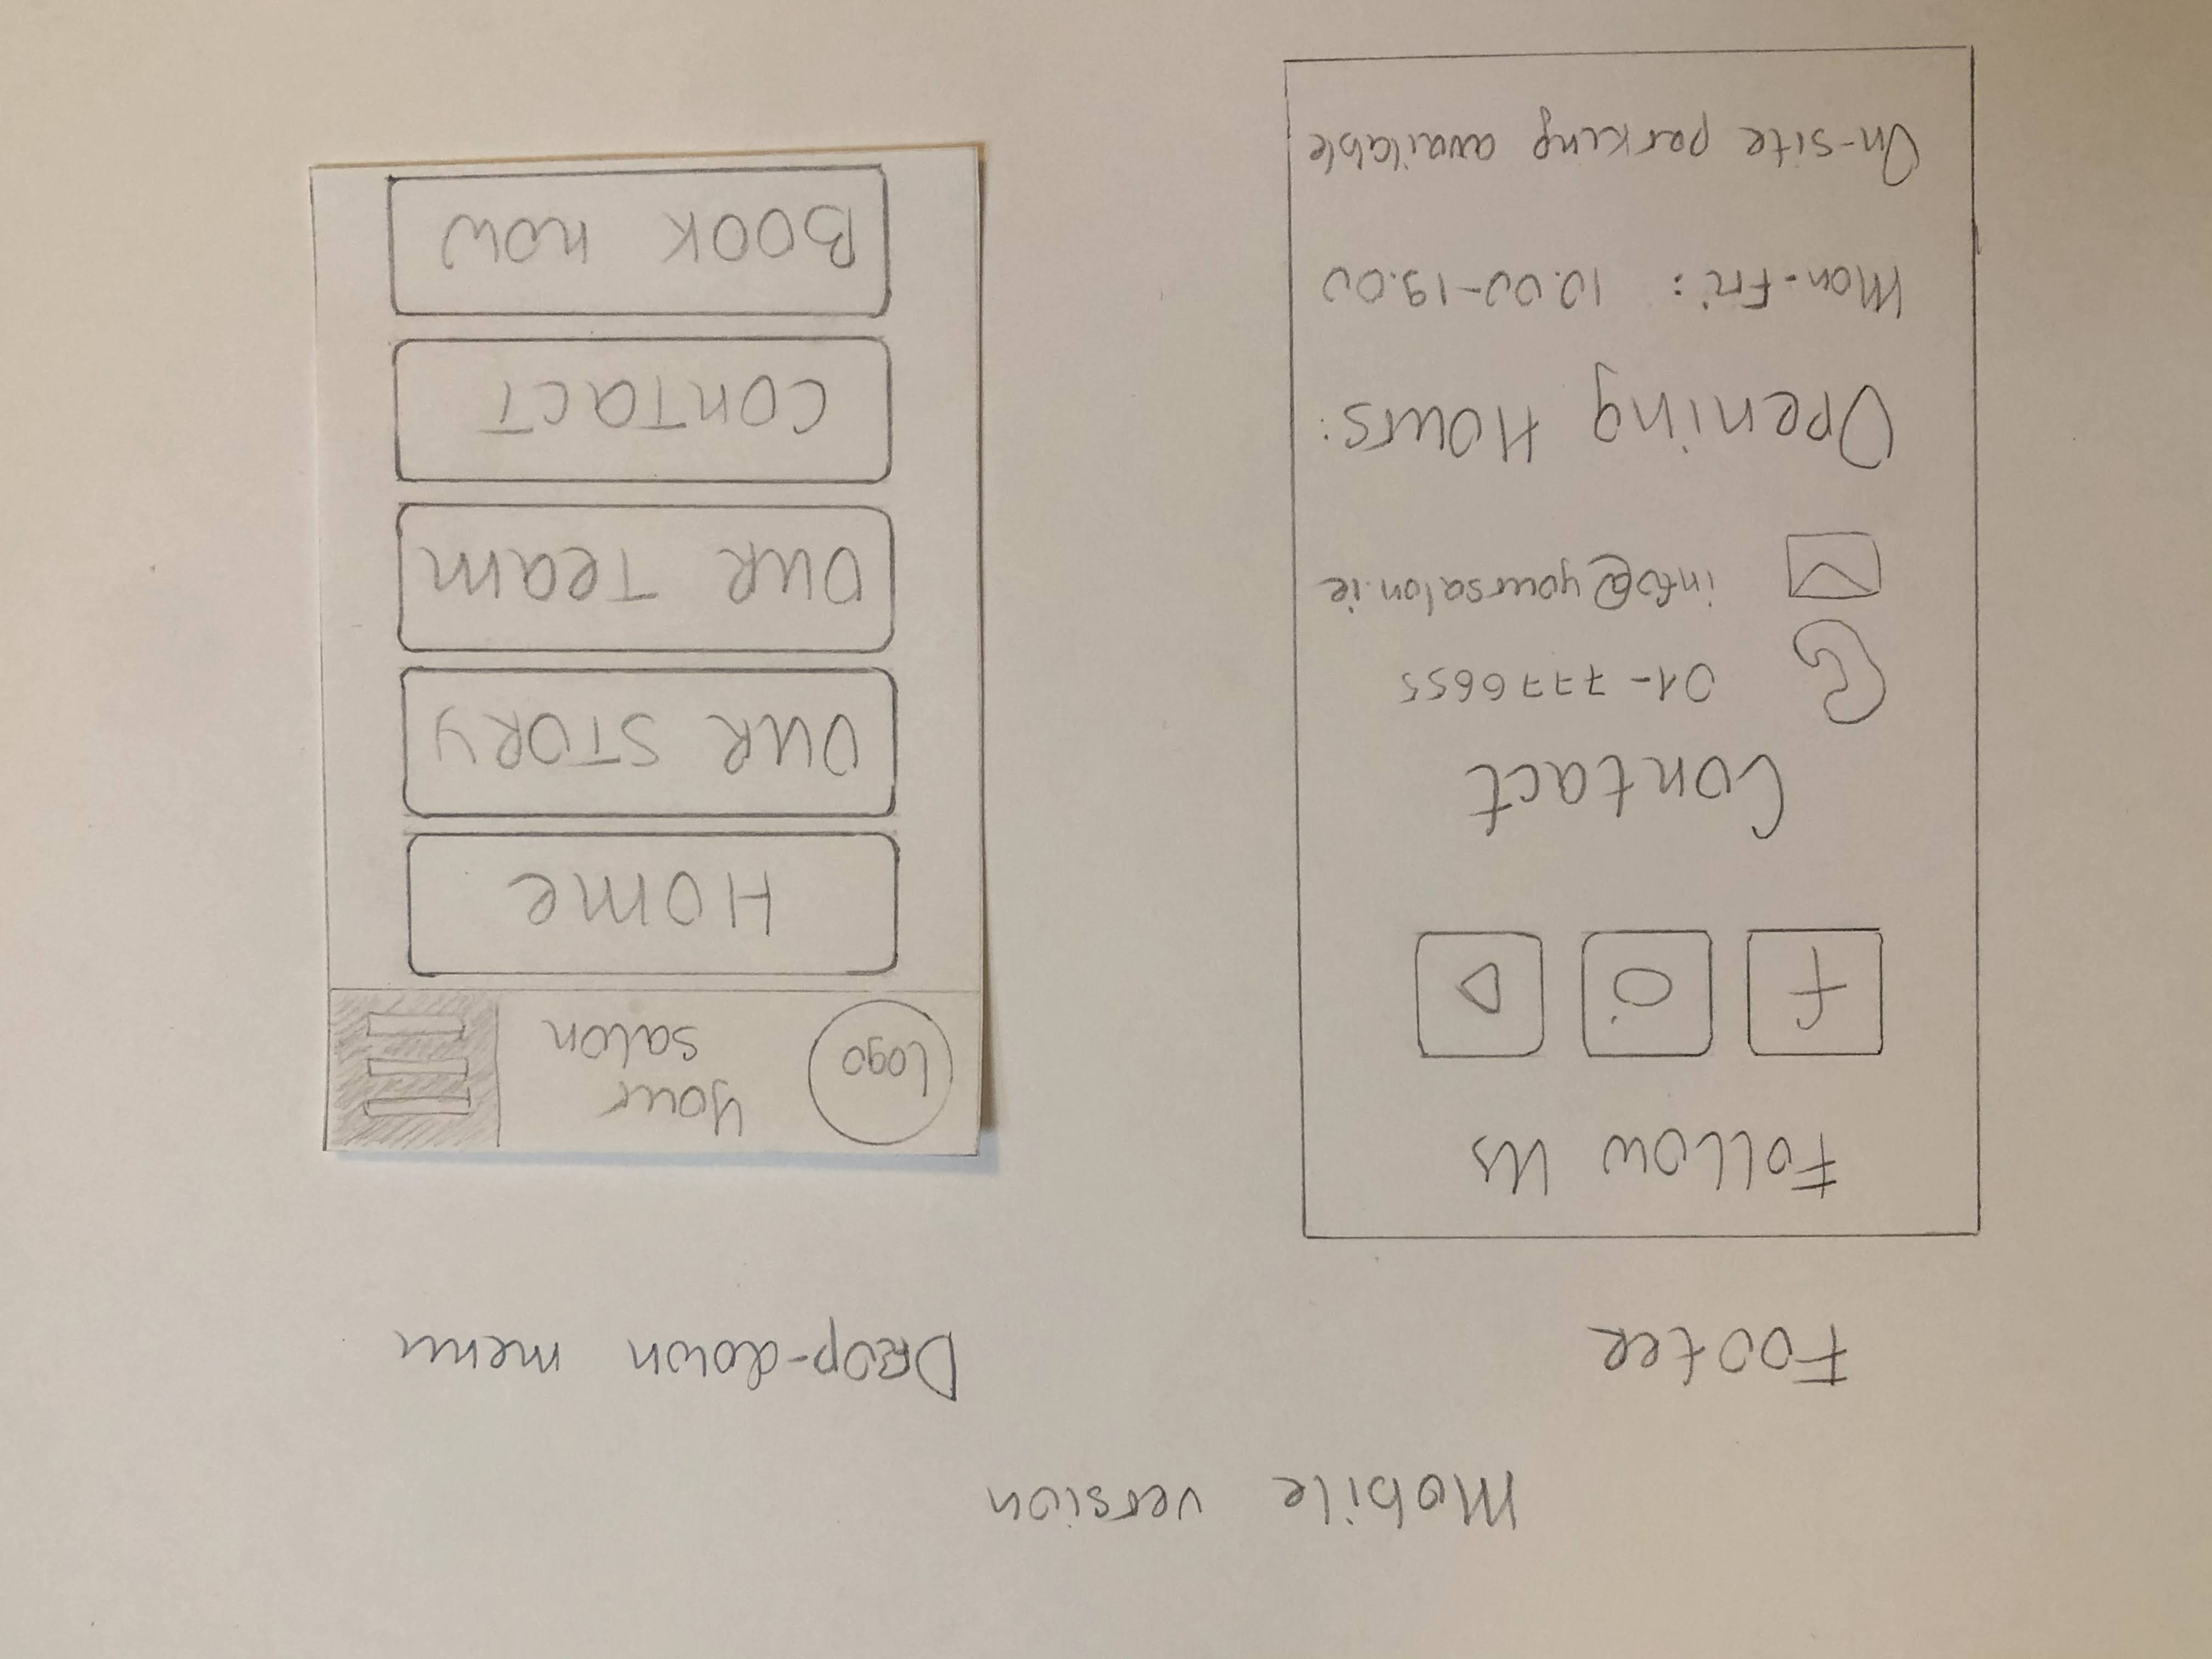 Mobile version
Footer
Follow Us
f
Contact
01-7776655
info@yoursalon.ie
Opening Hours:
Mon-Fri: 10.00-19.00
On-site parking available
Drop-down menu
Logo
Your
salon
Home
OUR STORY
OUR Team
Contact
Book now